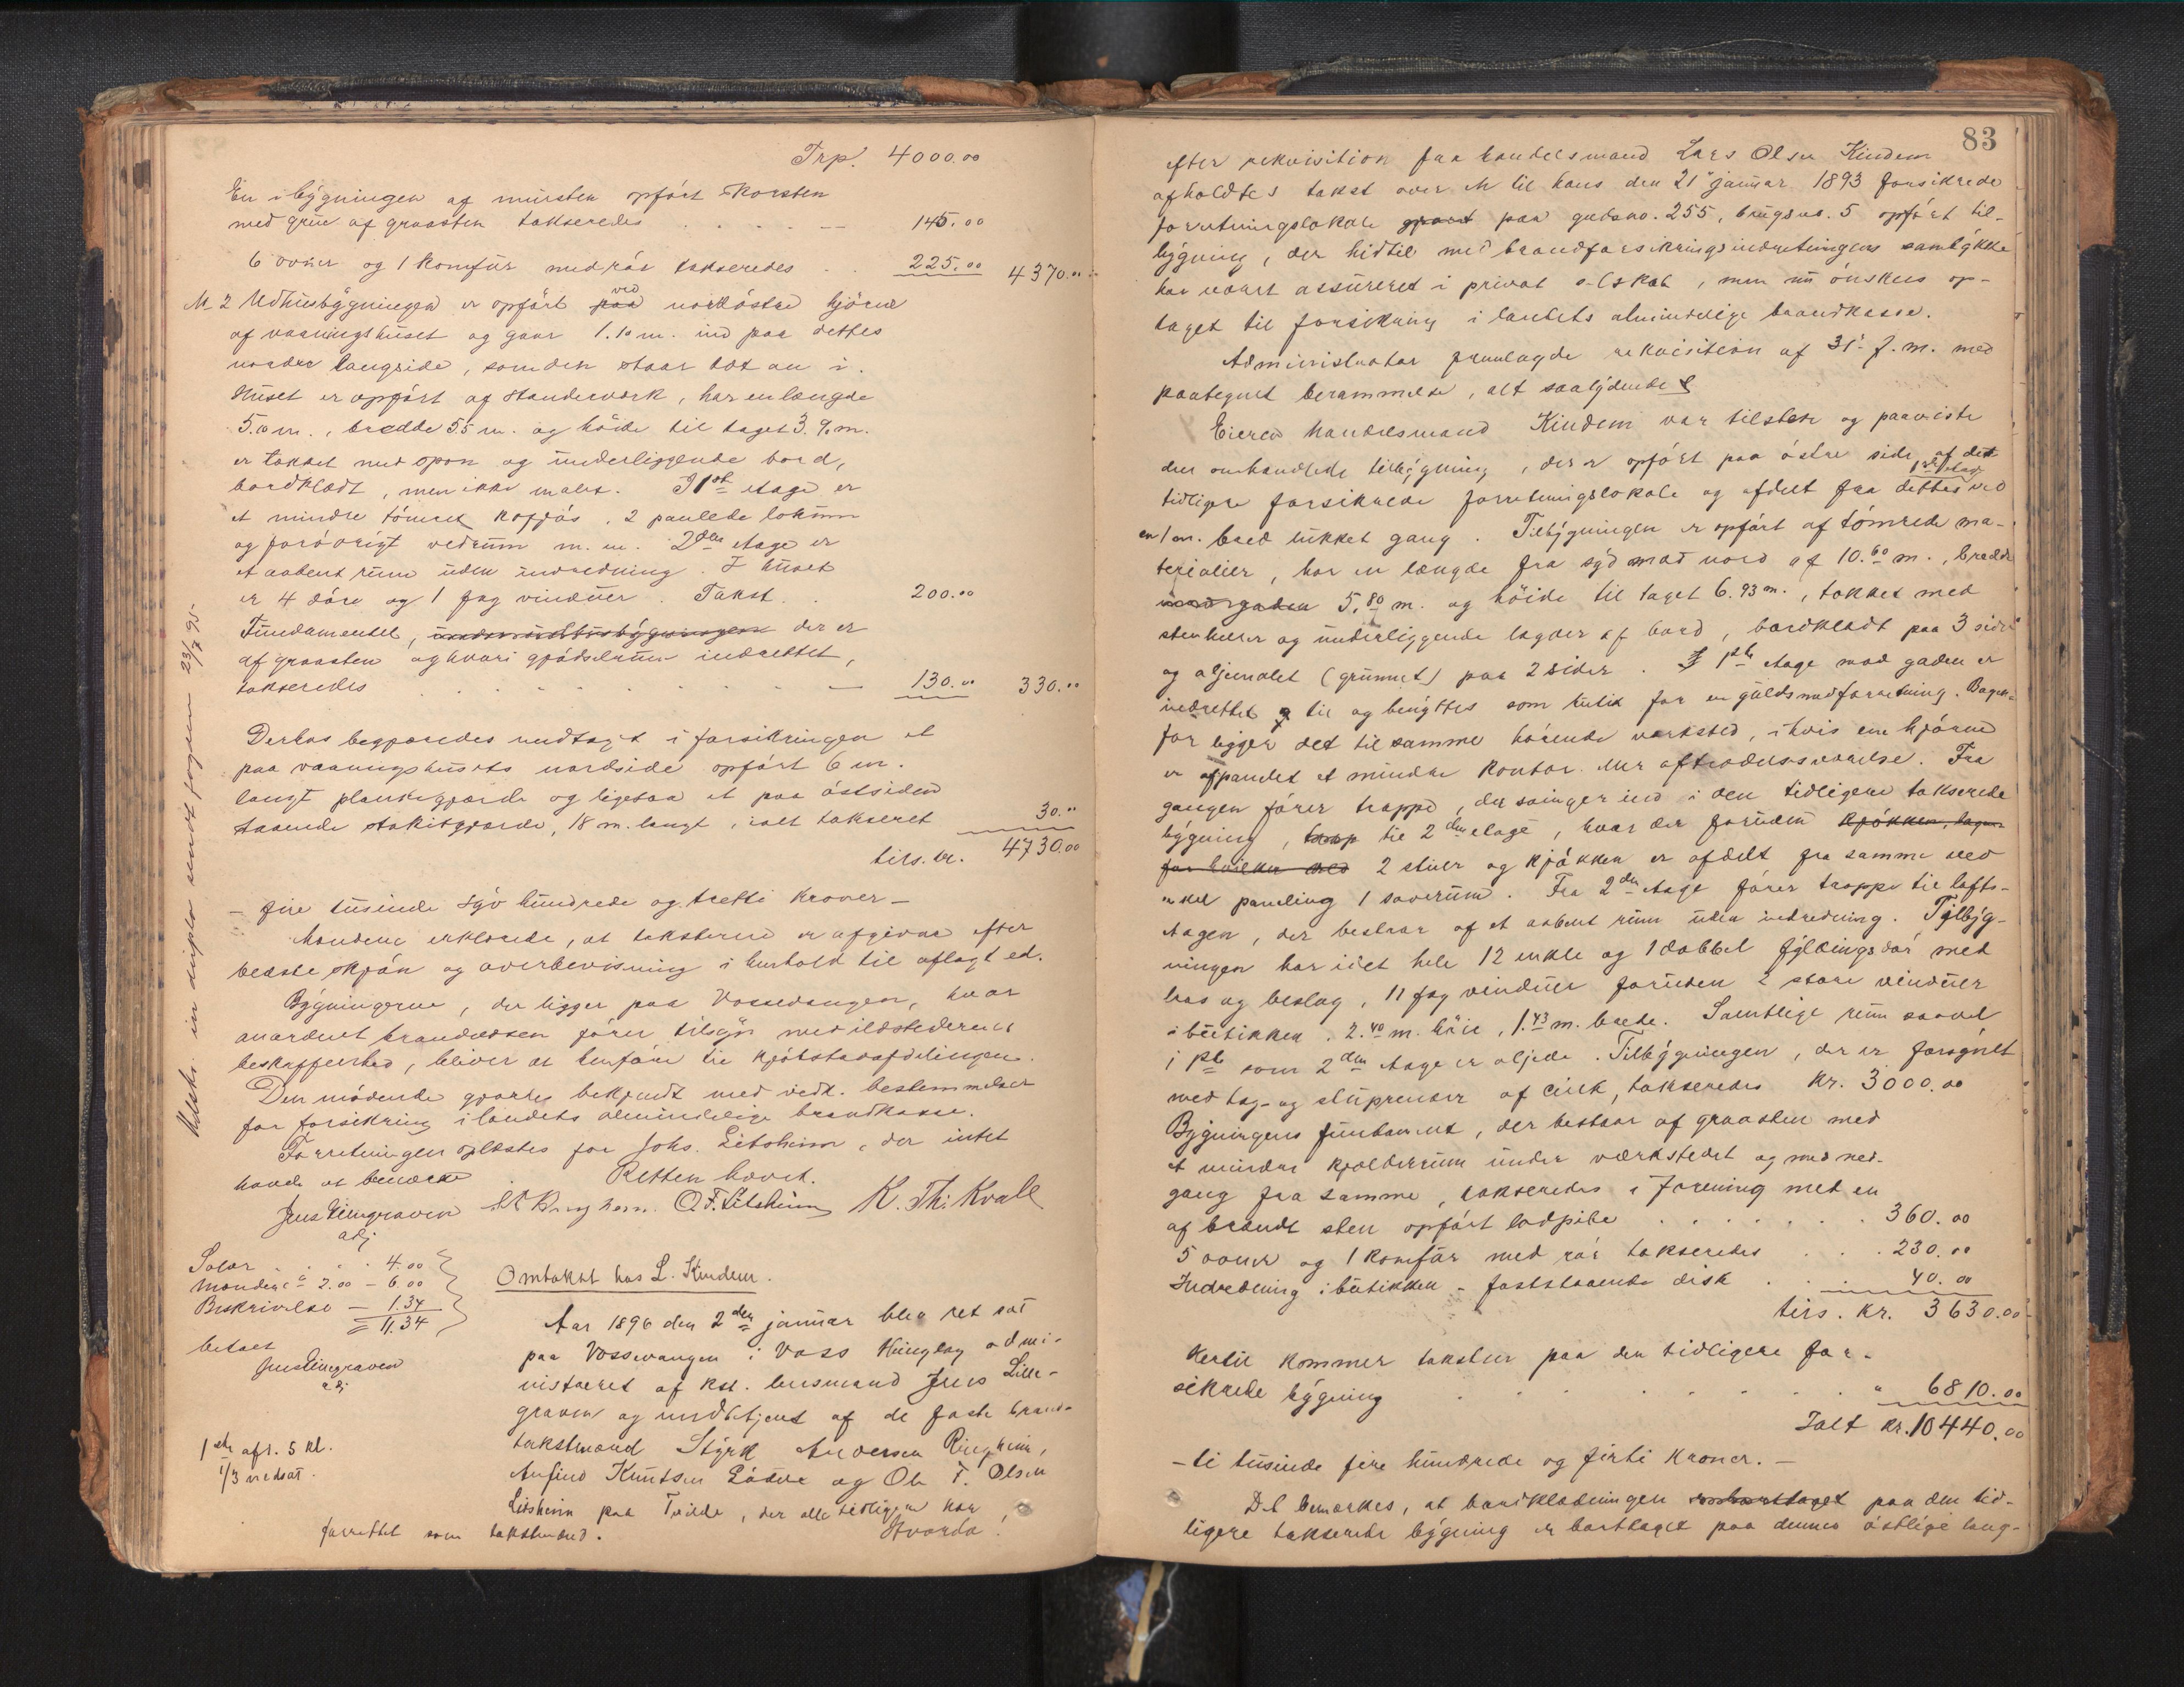 Trp. 4000.00
En i bygningen af mursten opført skorsten
med grue af graasten takseredes . . . . — 145.00
6 ovner og 1 komfur med rør takseredes . . 225.00 4370.00
N. 2 Udhusbygningen er opført paa ved nordøstre hjørne
af vaaningshuset og gaar 1.10 m. ind paa dettes
nordre langside, som den staar tæt an i.
Huset er opført af standerværk, har en længde
5.10 m., bredde 5.5 m. og høide til taget 3.90 m.
er tækket med spon og underliggende bord,
bordklædt, men ikke malet. I 1st etage er
et mindre tømret kofjøs, 2 panlede lokum
og forøvrigt vedrum m. m. 2den etage er
et aabent rum uden indredning. I huset
er 4 døre og 1 fag vinduer. Takst . . 200.00
Fundamentet, under udhusbygningen der er
af graasten og hvori gjødselrum indrettet,
takseredes . . . . . . . . — 130.00 330.00
Derhos begjæredes medtaget i forsikringen et
paa vaaningshusets nordside opført 6 m.
langt plankegjærde og ligesaa et paa østsiden
staaende stakitgjærde, 18 m. langt, ialt takseret 30.00
tils. kr. 4730.00
— fire tusinde syv hundrede og tretti kroner —
Mændene erklærede, at taksterne er afgivne efter
bedste skjøn og overbevisning i henhold til aflagt ed.
Bygningerne, der ligger paa Vossevangen, hvor
anordnet brandvæsen fører tilsyn med ildstedernes
beskaffenhed, bliver at henføre til kjøbstadafdelingen.
Den mødende gjordes bekjendt med vedk. bestemmelser
for forsikring i landets almindelige brandkasse.
Forretningen oplæstes for Johs. Litsheim, der intet
havde at bemærke Retten hævet.
Jens Lillegraven S A Ringheim. O. T. Litsheim K. Th. Kvale
adj
Udskr. in duplo sendt fogden 23/7 95
Salær . . . 4.00
Mændene a 2.00 — 6.00
Beskrivelse — 1.34
= 11.34
betalt
Jens Lillegraven
adj
Omtakst hos L. Kindem.
Aar 1896 den 2den januar blev ret sat
paa Vossevangen i Voss thinglag admi-
nistreret af kst. lensmand Jens Lille-
graven og medbetjent af de faste brand-
takstmænd Styrk Andersen Ringheim,
Anfind Knutsen Løthe og Ole T. Olsen
Litsheim paa Tvilde, der alle tidligere har
forrettet som takstmænd. Hvorda:
1ste afr. 5 kl.
1/3 nedsat.
83
efter rekvisition fra handelsmand Lars Olsen Kindem
afholdtes takst over et til hans den 21 januar 1893 forsikrede
forretningslokale paa gardsno. 255, brugsno. 5 opført til-
bygning, der hidtil med brandforsikringsindretningens samtykke
har været assureret i privat selskab, men nu ønskes op-
taget til forsikring i landets almindelige brandkasse.
Administrator fremlagde rekvisition af 31. f. m. med
paategnet berammelse, alt saalydende
Eieren handelsmand Kindem var tilstede og paaviste
den omhandlede tilbygning, der er opført paa østre side af det
tidligere forsikrede forretningslokale og afdelt fra dettes 1ste etage ved
en 1 m. bred lukket gang. Tilbygningen er opført af tømrede ma-
terialier, har en længde fra syd mod nord af 10.60 m., bredde
mod gaden 5.80 m. og høide til taget 6.93 m., tækket med
stenheller og underliggende lagder af bord, bordklædt paa 3 sider
og oljemalet (grunnet) paa 2 sider. I 1ste etage mod gaden er
indrettet og til og benyttes som butik for en guldsmedforretning. Bagen-
for ligger det til samme hørende værksted, i hvis ene hjørne
er afpanelet et mindre kontor eller aftrædelsesværelse. Fra
gangen fører trappe, der svinger ind i den tidligere takserede
bygning, trap til 2den etage, hvor der foruden kjøkken,
for hvilken med 2 stuer og kjøkken er afdelt fra samme ved
enkel paneling 1 soverum. Fra 2den etage fører trappe til lofts-
etagen, der bestaar af et aabent rum uden indredning. Tilbyg-
ningen har i det hele 12 enkle og 1 dobbel fyldingsdør med
laas og beslag, 11 fag vinduer foruden 2 store vinduer
i butikken. 2.40 m. høie, 1.43 m. brede. Samtlige rum saavel
i 1ste som 2den etage er oljede. Tilbygningen, der er forsynet
med tag- og stuprender af zink, takseredes kr. 3000.00
Bygningens fundament, der bestaar af graasten med
et mindre kjælderrum under værkstedet og med ned-
gang fra samme, takseredes i forening med en
af brændt sten opført ladpibe . . . . . . . 360.00
5 ovner og 1 komfur med rør takseredes . . . 230.00
Indredning i butikken - faststaaende disk . . . 40.00
tils. kr. 3630.00
Hertil kommer taksten paa den tidligere for-
sikrede bygning . . . . . . . . " 6810.00
Ialt kr. 10440.00
— ti tusinde fire hundrede og firti kroner. —
Det bemærkes, at bordklædningen paa den tid-
ligere takserede bygning er borttaget paa dennes østlige lang-